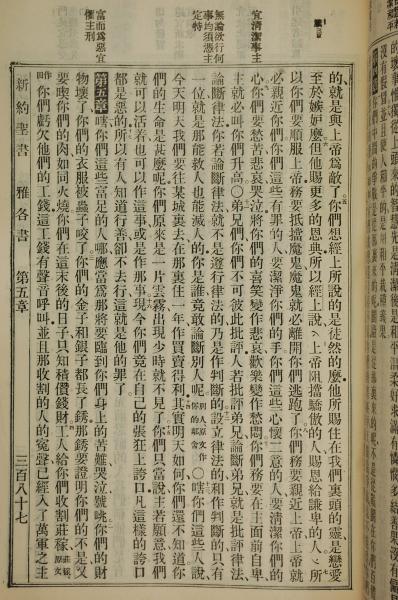 宜清潔事主
無論欲行何
事均須憑主
定特
富而爲惡宜
懼主刑
的就是與上帝爲敵了你們想經上所說的是徒然的麼他所賜住在我們裏頭的靈是戀愛
至於嫉妒麼但他賜更多的恩典所以經上說上帝阻擋驕傲的人賜恩給謙卑的人所
以你們要順服上帝務要抵擋魔鬼魔鬼就必離開你們逃跑了你們務要親近上帝上帝就
必親近你們你們這些有罪的人要潔淨你們的手你們這些心懷二意的人要清潔你們的
心你們要愁苦悲哀哭泣將你們的喜笑變作悲哀歡樂變作愁悶你們務要在主面前自卑
主就必叫你們升高〇弟兄們你們不可彼此批評人若批評弟兄論斷弟兄就是批評律法
論斷律法你若論斷律法就不是遵行律法的乃是作判斷的設立律法的和作判斷的只有
一位就是那能救人也能滅人的你是誰竟敢論斷別人呢別人原文作你的鄰舍〇嗐你們這些人說
今天明天我們要往某城裏去在那裏住一年作買賣得利其實明天如何你們還不知道你
們的生命是甚麼呢你們原來是一片雲霧出現少時就不見了你們只當說主若願意我們
就可以活着也可以作這事或是作那事現今你們竟在自己的張狂上誇口凡這樣的誇口
都是惡的所以有人知道行善卻不去行這就是他的罪了
第五章嗐你們這些富足的人哪應當爲那將要臨到你們身上的苦難哭泣號咷你們的財
物壞了你們的衣服被蟲子咬了你們的金子和銀子都長了銹那銹要證明你們的不是又
要喫你們的肉如同火燒你們在這末後的日子只知積儹錢財工人給你們收割莊稼莊稼原文
作田你們虧欠他們的工錢這工錢有聲音呼叫並且那收割的人的冤聲已經入了萬軍之主
新約聖書 雅各書 第五章 三百八十七